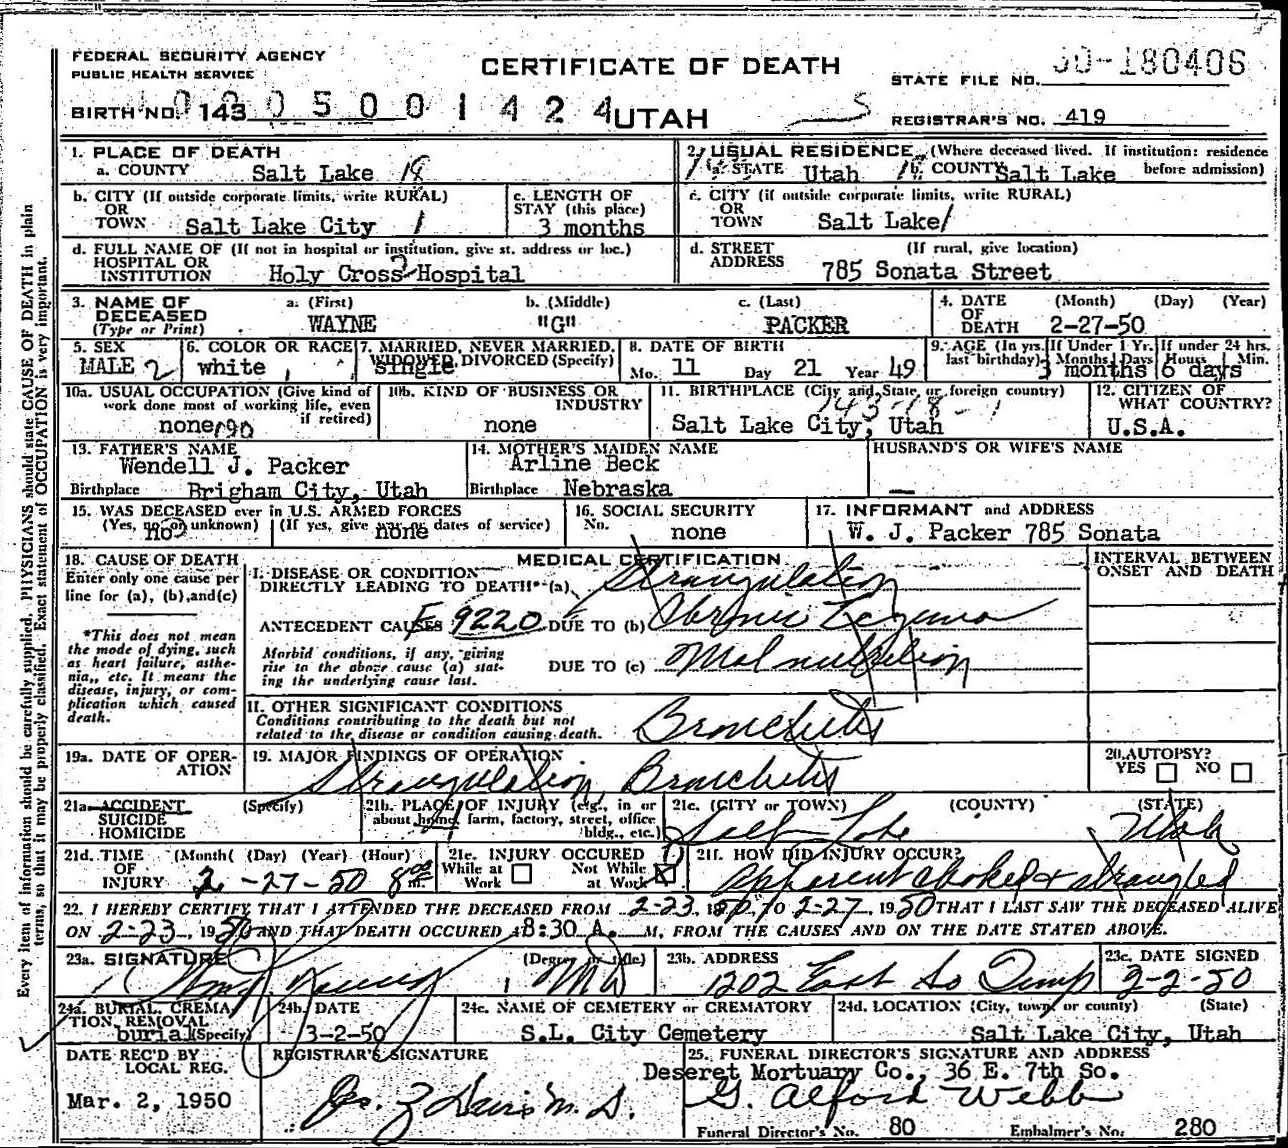 FEDERAL SECURITY AGENCY
PUBLIC HEALTH SERVICE
CERTIFICATE OF DEATH
STATE FILE NO. 50-180406
BIRTH NO. 143 0 2 0 5 0 0 1 4 2 4 UTAH
REGISTRAR'S NO. 419
1. PLACE OF DEATH
a. COUNTY Salt Lake 18
2. USUAL RESIDENCE (Where deceased lived. If institution: residence before admission)
a. STATE Utah b. COUNTY Salt Lake
b. CITY (If outside corporate limits, write RURAL)
OR TOWN Salt Lake City 1
c. LENGTH OF STAY (this place)
3 months
c. CITY (if outside corporate limits, write RURAL)
OR TOWN Salt Lake/
d. FULL NAME OF (If not in hospital or institution, give st. address or loc.)
HOSPITAL OR INSTITUTION Holy Cross Hospital
d. STREET ADDRESS (If rural, give location)
785 Sonata Street
3. NAME OF DECEASED (Type or Print)
a. (First) WAYNE
b. (Middle) "G"
c. (Last) PACKER
4. DATE OF DEATH (Month) (Day) (Year)
2-27-50
5. SEX
MALE 2
6. COLOR OR RACE
white
7. MARRIED, NEVER MARRIED, WIDOWED, DIVORCED (Specify)
single
8. DATE OF BIRTH
Mo. 11 Day 21 Year 49
9. AGE (In yrs. last birthday) If Under 1 Yr. Months Days If under 24 hrs. Hours Min.
3 months 6 days
10a. USUAL OCCUPATION (Give kind of work done most of working life, even if retired)
none 190
10b. KIND OF BUSINESS OR INDUSTRY
none
11. BIRTHPLACE (City and State or foreign country)
143-18-1
Salt Lake City, Utah
12. CITIZEN OF WHAT COUNTRY?
U.S.A.
13. FATHER'S NAME
Wendell J. Packer
Birthplace Brigham City, Utah
14. MOTHER'S MAIDEN NAME
Arline Beck
Birthplace Nebraska
HUSBAND'S OR WIFE'S NAME
—
15. WAS DECEASED ever in U.S. ARMED FORCES
(Yes, no or unknown) (If yes, give war or dates of service)
no none
16. SOCIAL SECURITY No.
none
17. INFORMANT and ADDRESS
W. J. Packer 785 Sonata
18. CAUSE OF DEATH
Enter only one cause per line for (a), (b), and (c)
*This does not mean the mode of dying, such as heart failure, asthenia, etc. It means the disease, injury, or complication which caused death.
MEDICAL CERTIFICATION
INTERVAL BETWEEN ONSET AND DEATH
I. DISEASE OR CONDITION DIRECTLY LEADING TO DEATH* (a) Strangulation
ANTECEDENT CAUSES E9220 DUE TO (b) Chronic Eczema
Morbid conditions, if any, giving rise to the above cause (a) stating the underlying cause last. DUE TO (c) Malnutrition
II. OTHER SIGNIFICANT CONDITIONS
Conditions contributing to the death but not related to the disease or condition causing death.
Bronchitis
19a. DATE OF OPERATION
19. MAJOR FINDINGS OF OPERATION
Strangulation, Bronchitis
20. AUTOPSY?
YES NO
21a. ACCIDENT SUICIDE HOMICIDE (Specify)
21b. PLACE OF INJURY (e.g., in or about home, farm, factory, street, office bldg., etc.)
21c. (CITY or TOWN) (COUNTY) (STATE)
Salt Lake Utah
21d. TIME OF INJURY (Month) (Day) (Year) (Hour)
2-27-50 8 00 m.
21e. INJURY OCCURED
While at Work Not While at Work X
21f. HOW DID INJURY OCCUR?
Apparent choked & strangled
22. I HEREBY CERTIFY THAT I ATTENDED THE DECEASED FROM 2-23, 1950, TO 2-27, 1950 THAT I LAST SAW THE DECEASED ALIVE
ON 2-23, 1950 AND THAT DEATH OCCURED AT 8:30 A. M, FROM THE CAUSES AND ON THE DATE STATED ABOVE.
23a. SIGNATURE (Degree or title)
MD
23b. ADDRESS
1202 East So Temp
23c. DATE SIGNED
3-2-50
24a. BURIAL, CREMATION, REMOVAL (Specify)
burial
24b. DATE
3-2-50
24c. NAME OF CEMETERY or CREMATORY
S.L. City Cemetery
24d. LOCATION (City, town, or county) (State)
Salt Lake City, Utah
DATE REC'D BY LOCAL REG.
Mar. 2, 1950
REGISTRAR'S SIGNATURE
Geo. Z Davis M.D.
25. FUNERAL DIRECTOR'S SIGNATURE AND ADDRESS
Deseret Mortuary Co., 36 E. 7th So.
G. Alford Webb
Funeral Director's No. 80 Embalmer's No. 280
Every item of information should be carefully supplied. PHYSICIANS should state CAUSE OF DEATH in plain
terms, so that it may be properly classified. Exact statement of OCCUPATION is very important.